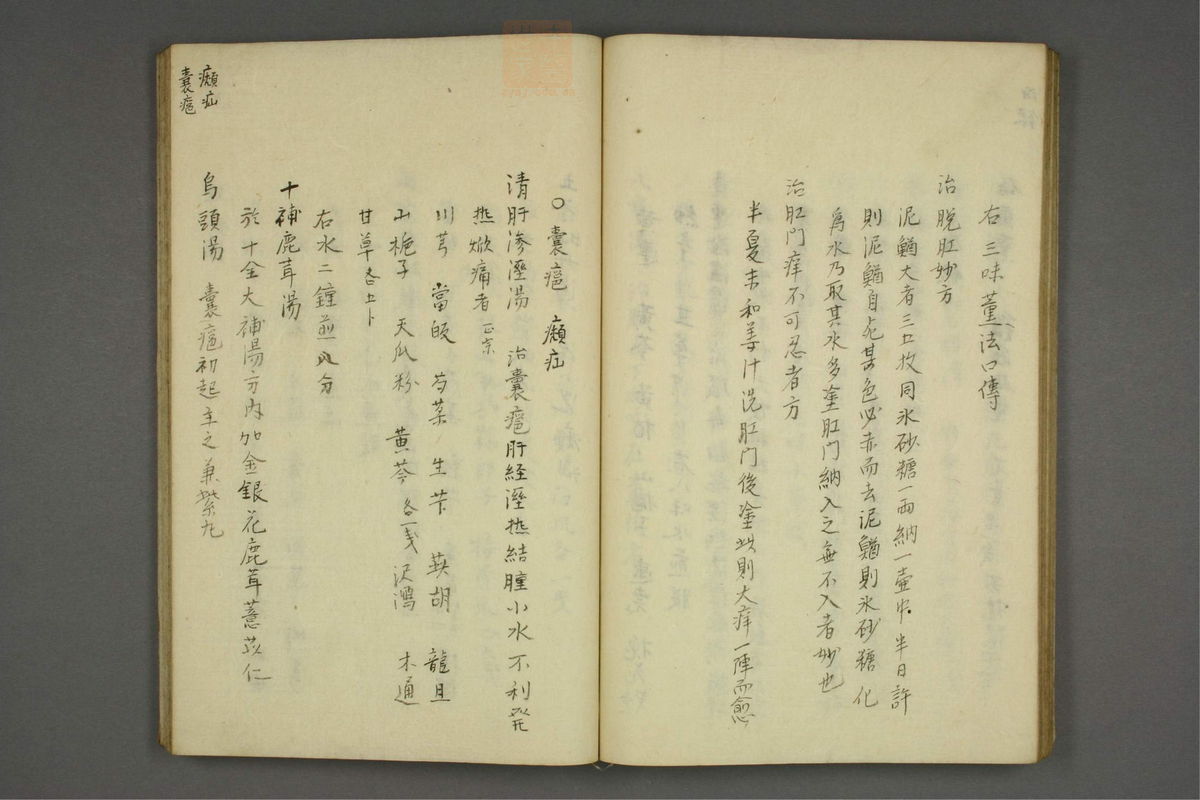 右三味薫法口傳
治脱肛妙方
泥鰌大者三五枚同氷砂糖一両納一壷中半日許
則泥鰌自死其色必赤而去泥鰌則氷砂糖化
為水乃取其水多塗肛門納入之無不入者妙也
治肛門痒不可忍者方
半夏末和姜汁洗肛門後塗此則大痒一陣而愈
癩疝
囊癰
○囊癰 癩疝
清肝滲溼湯 治囊癰肝経溼热結腫小水不利発
热焮痛者 正宗
川芎 當皈 芍薬 生芐 茈胡 龍旦
山梔子 天瓜粉 黄芩各一戋 沢瀉 木通
甘草各五卜
右水二鐘煎八分
十補鹿茸湯
於十全大補湯方内加金銀花鹿茸薏苡仁
烏頭湯 囊癰初起主之兼紫丸